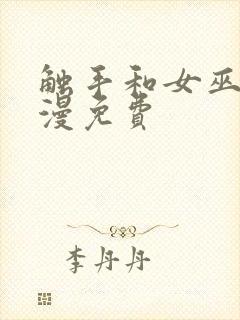 触手和女巫
漫免费
李丹丹